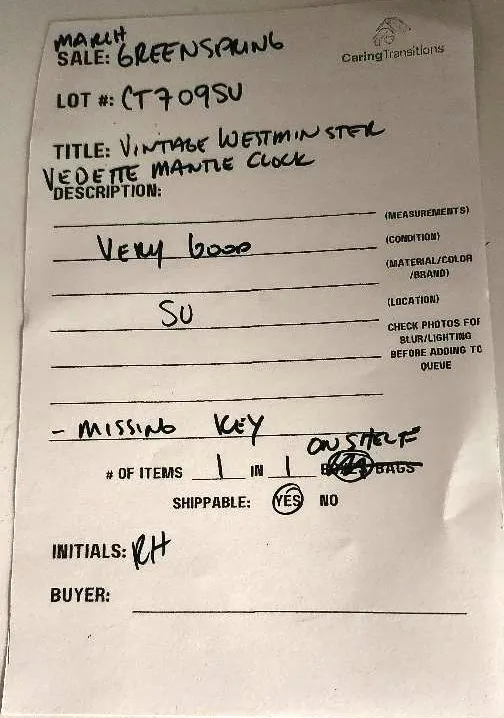 MARCH
SALE: GREENSPRING
CaringTransitions
LOT #: CT709SU
TITLE: VINTAGE WESTMINSTER
VEDETTE MANTLE CLOCK
DESCRIPTION:
(MEASUREMENTS)
VERY GOOD (CONDITION)
(MATERIAL/COLOR
/BRAND)
SU (LOCATION)
CHECK PHOTOS FOR
BLUR/LIGHTING
BEFORE ADDING TO
QUEUE
- MISSING KEY
ON SHELF
# OF ITEMS 1 IN 1 BAGS
SHIPPABLE: YES NO
INITIALS: RH
BUYER: